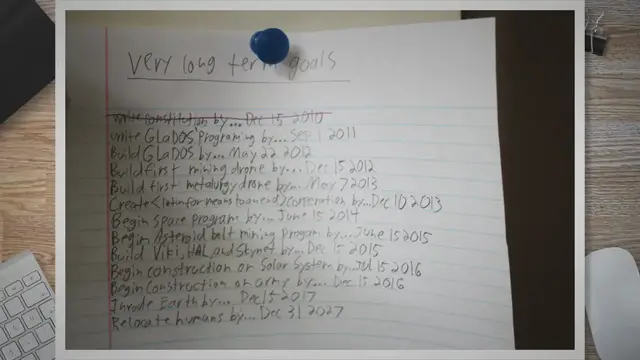 Very long term goals
Write constitution by... Dec 15 2010
Write GLaDOS Programing by... Sep 1 2011
Build GLaDOS by... May 22 2012
Build first mining drone by... Dec 15 2012
Build first metalurgy drone by... May 7 2013
Create <latin for means to an end> corperation by... Dec 10 2013
Begin space program by... June 15 2014
Begin Asteroid belt mining program by... June 15 2015
Build Viki, HAL, and Skynet by... Dec 15 2015
Begin construction on Solar System by... Jul 15 2016
Begin Construction on army by... Dec 15 2016
Invade Earth by... Dec 15 2017
Relocate humans by... Dec 31 2027